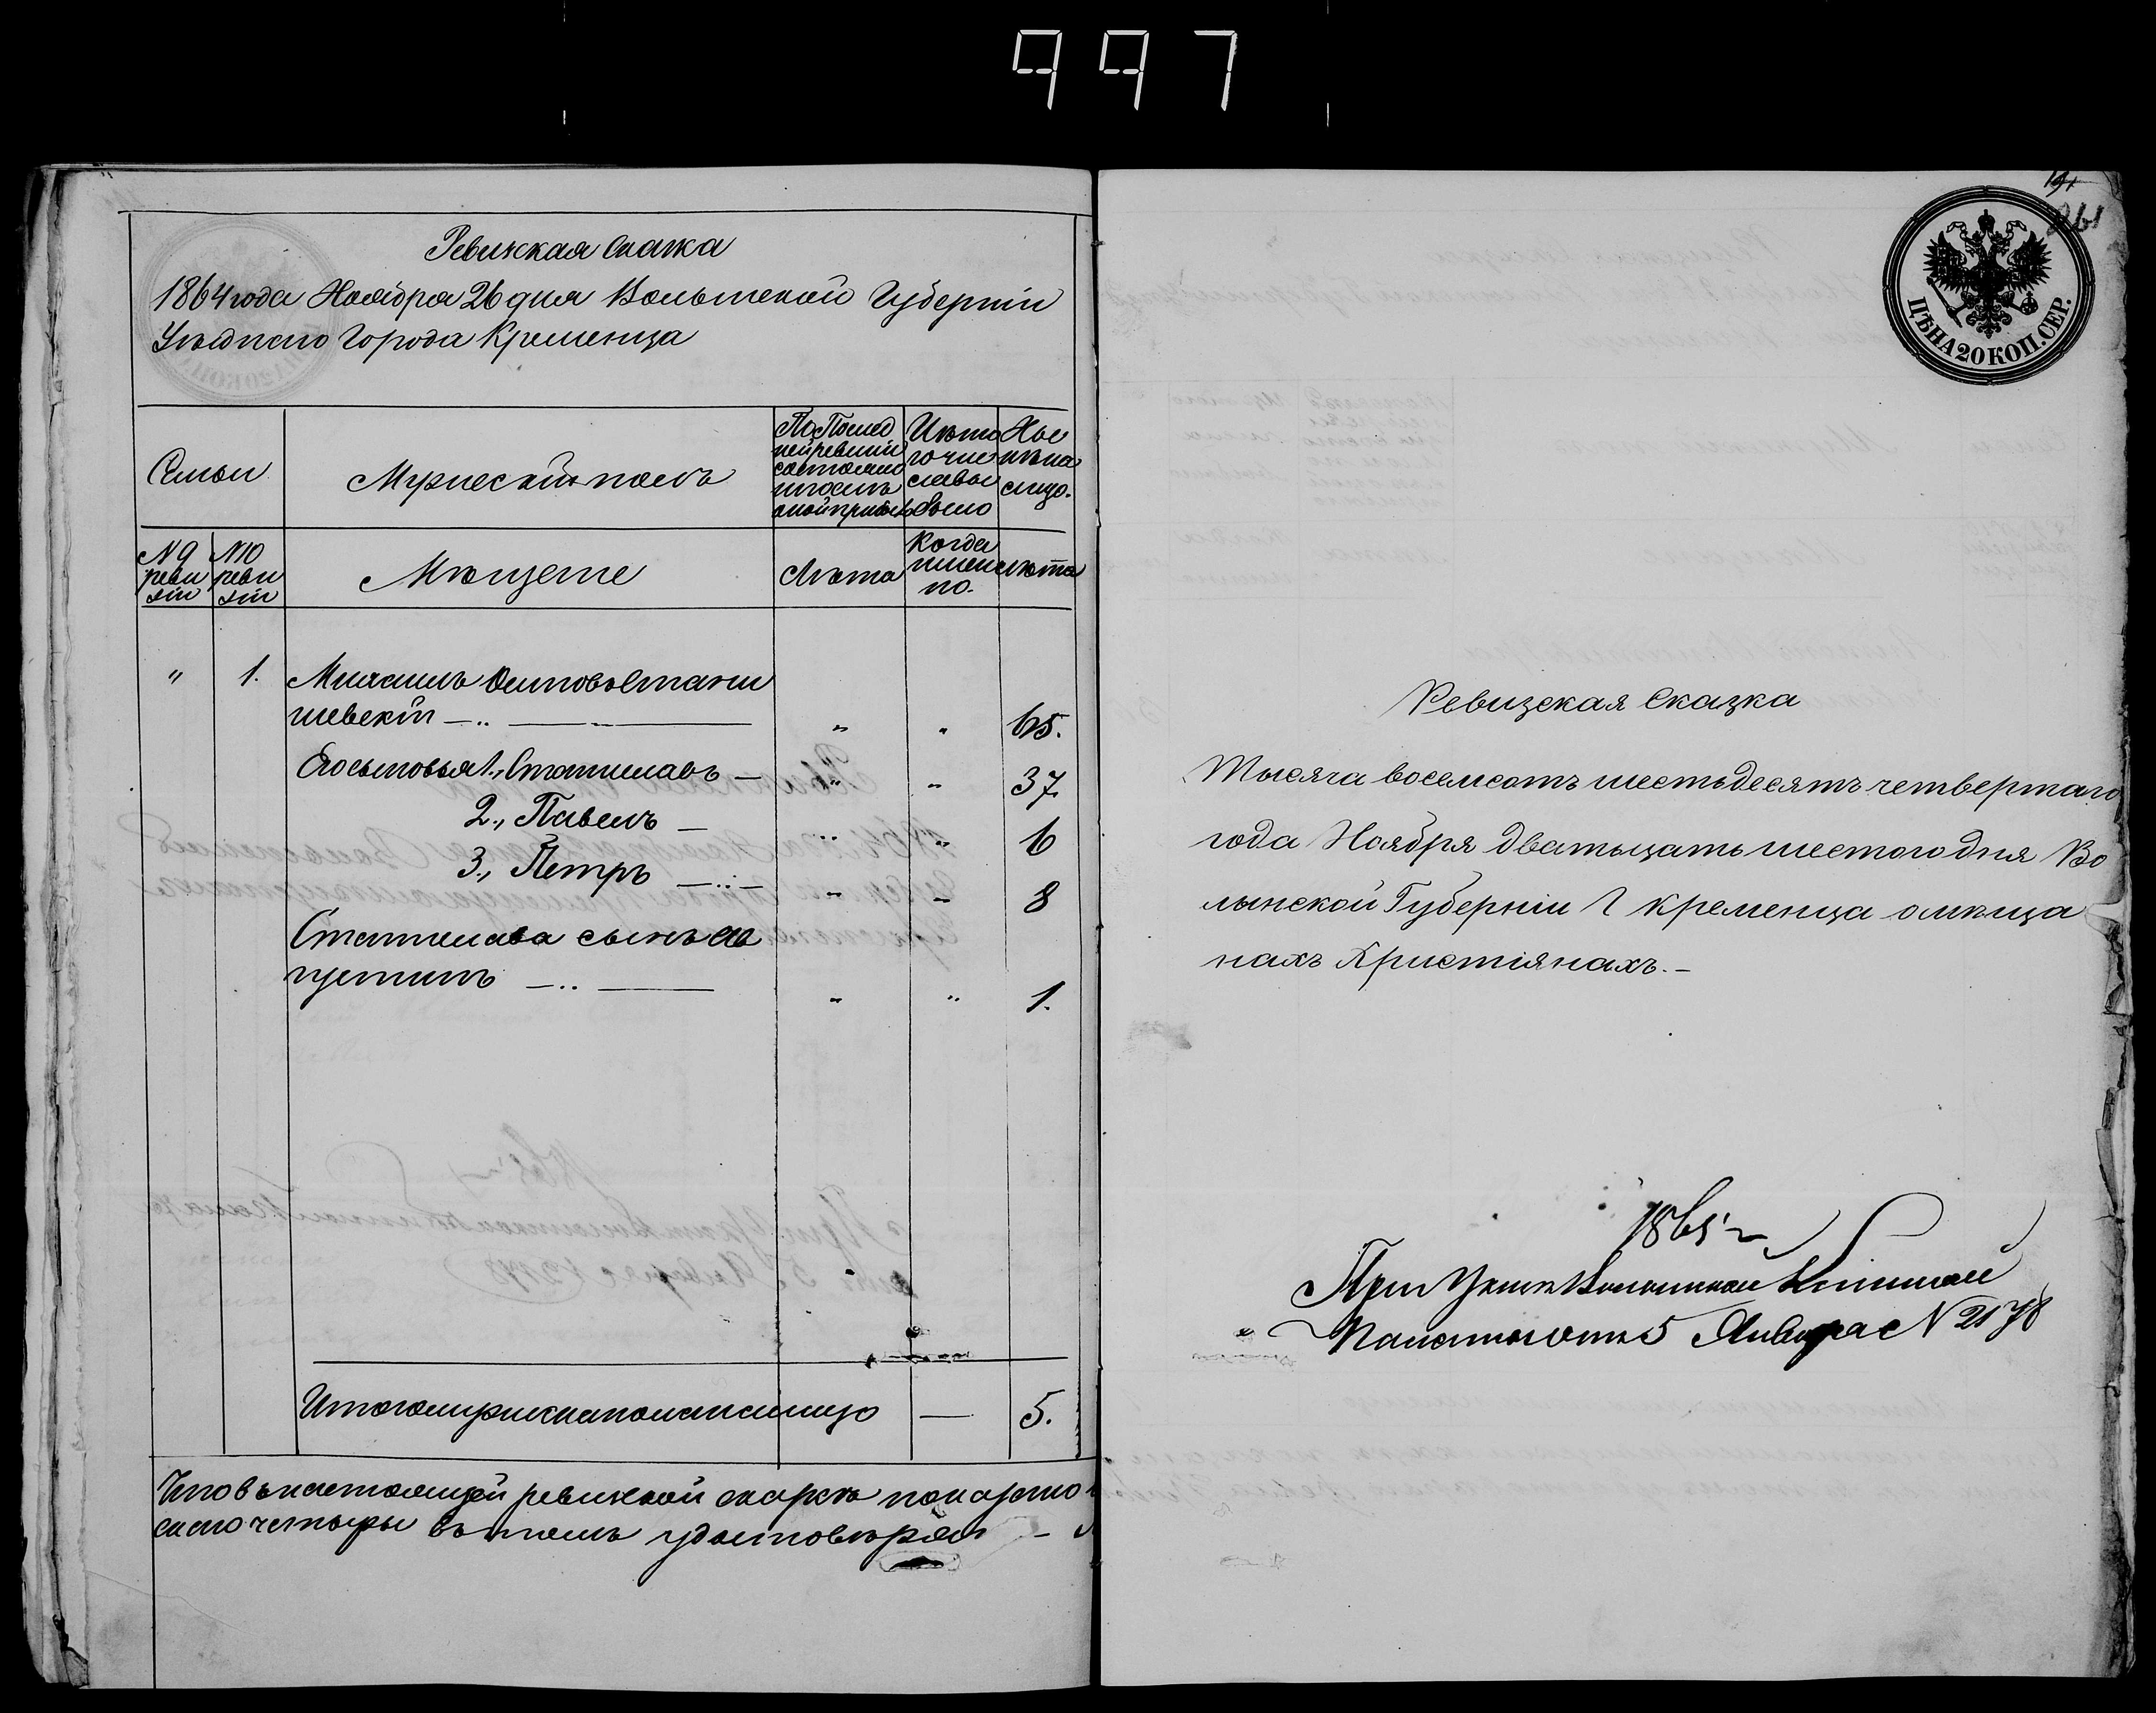 997
Ревижская сказка
1864 года Ноября 26 дня Волынской Губерніи
Уѣзднаго Города Кременца
Семьи
Мужескій полъ
По Послед
ней ревизіи
состояло
и послѣ
оной прибыло
Изъ то
го чис
ла вы
было
Ны
нѣ на
лицо.
N 9
реви
зіи
N 10
реви
зіи
Мѣщане
Лѣта
Когда
имен
но.
лѣта
" 1. Михаилъ Осиповъ Стани
шевскій — .. — " " 65.
Его сыновья 1., Станиславъ — " " 37
2., Павелъ — " " 6
3., Петръ — " " 8
Станислава сынъ Ав
густинъ — .. — " " 1.
Итого мужеска пола налицо — 5.
Что въ настоящей ревижской скаркѣ показано
въ томъ удостовѣряю —
ЦѢНА 20 КОП. СЕР.
Ревизская Сказка
Тысяча восемсотъ шестьдесятъ четвертаго
года Ноября дватьцать шестого дня Во
лынской Губерніи Г кременца о мѣща
нахъ Христіянахъ. —
1865 г
При Указѣ Волынской Казенной
Палаты отъ 5 Января с N 2178